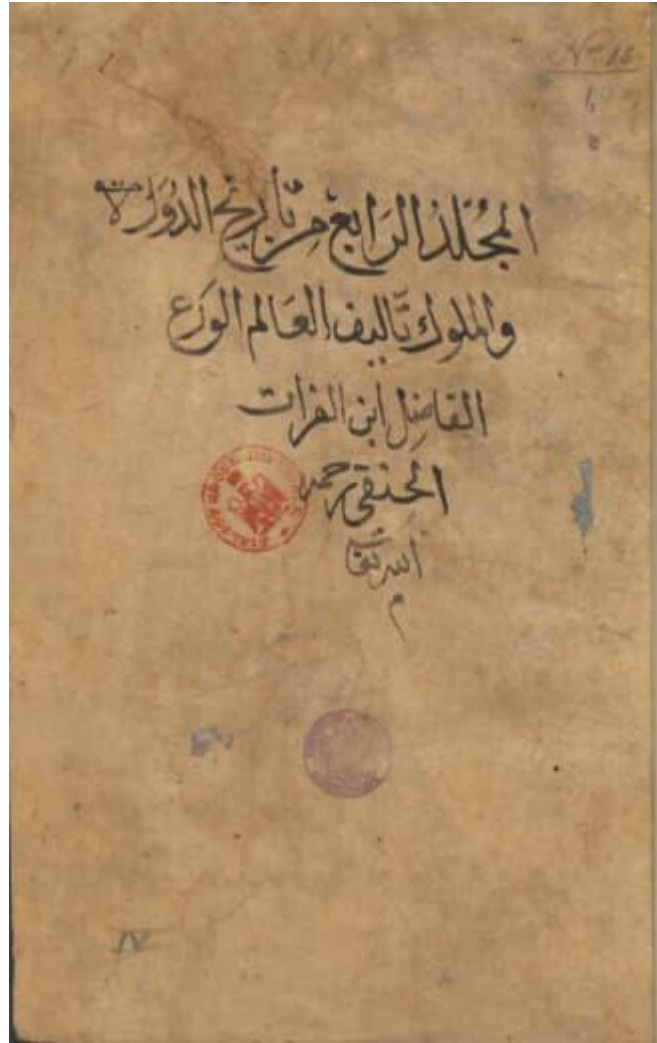 No 16
المجلد الرابع من تأريخ الدول
والملوك تأليف العالم الورع
الفاضل ابن الفرات
الحنفي رحمه
الله تعالى
م
IV